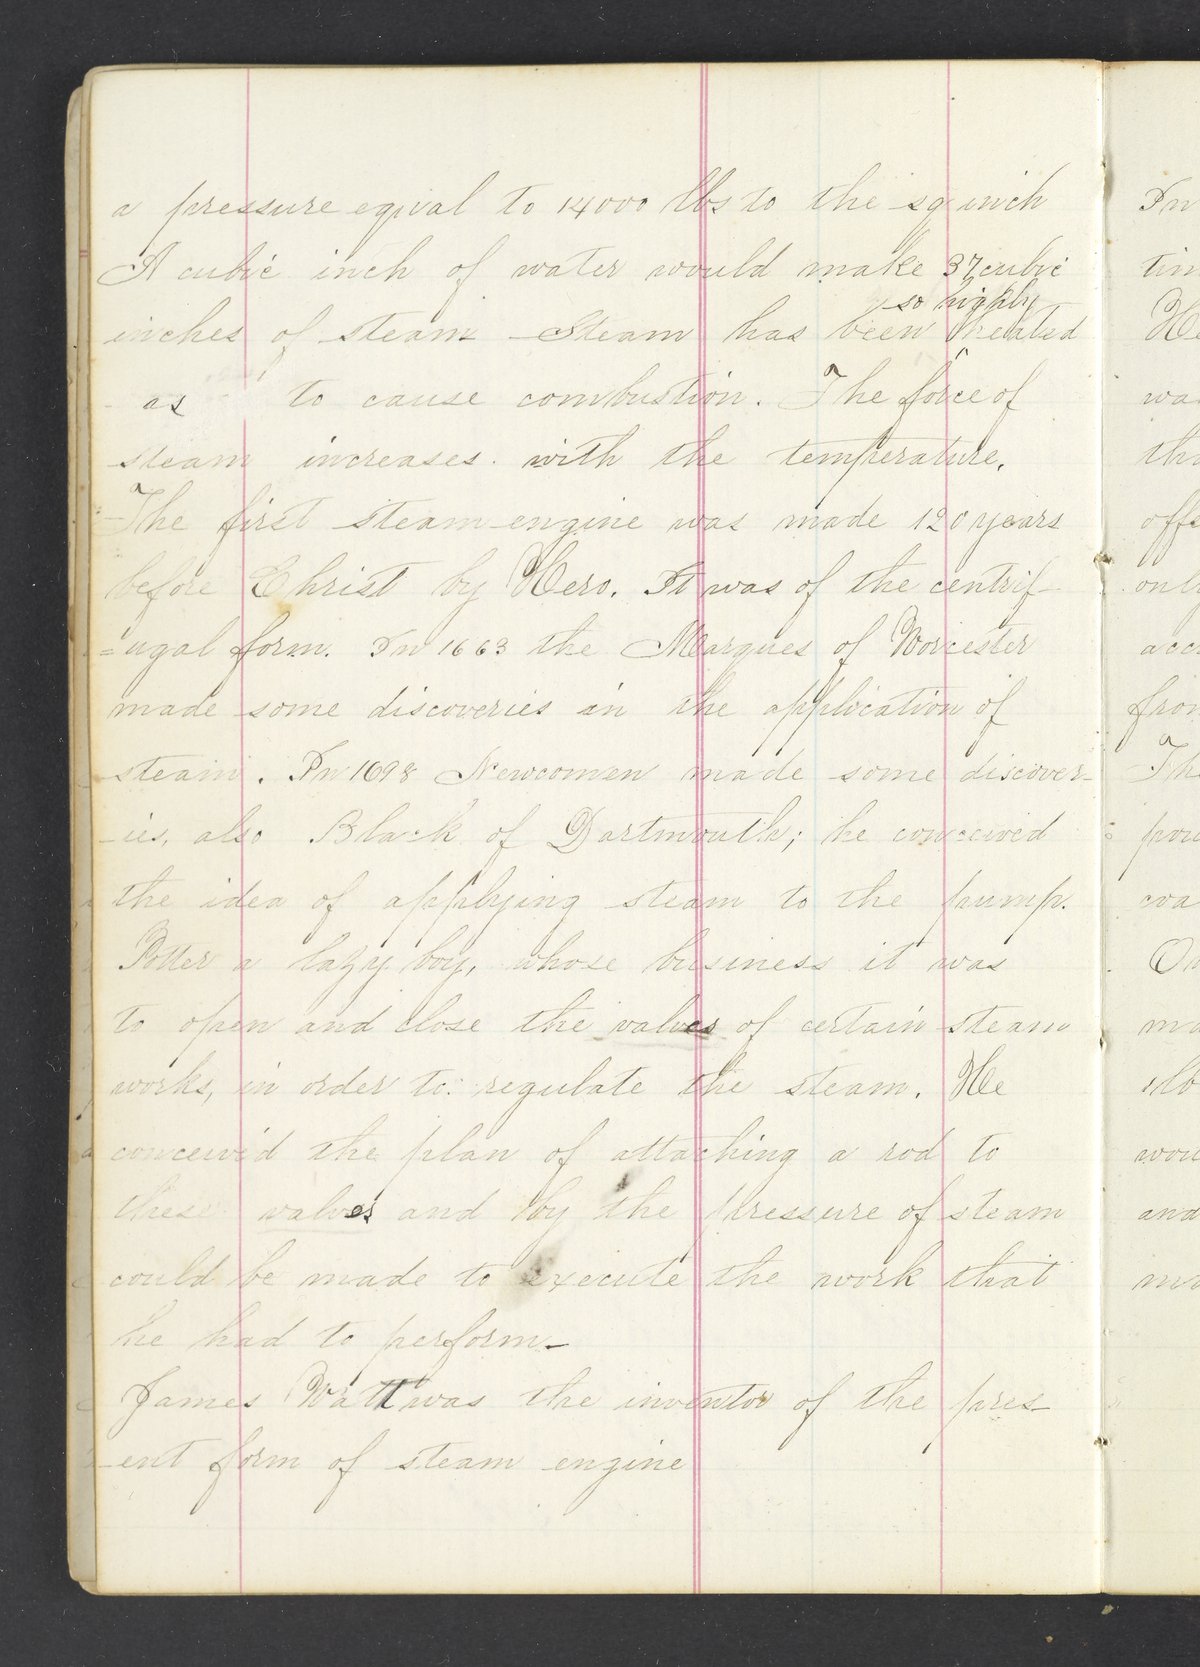 a pressure eqival to 14000 lbs to the sq inch
A cubic inch of water would make 37 cubic
so highly
inches of steam Steam has been ^ heated
as to cause combustion. The force of
steam increases with the temperature.
The first steam engine was made 120 years
before Christ by Hero. It was of the centrif-
=ugal form. In 1663 the Marques of Worcester
made some discoveries in the application of
steam. In 1698 Newcomen made some discover-
-ies, also Black of Dartmouth; he conceived
the idea of applying steam to the pump.
Potter a lazy boy, whose business it was
to open and close the valves of certain steam
works, in order to regulate the steam. He
conceiv'd the plan of attaching a rod to
these valves and by the pressure of steam
could be made to execute the work that
he had to perform-
James Watt was the inventor of the pres-
-ent form of steam engine
In
tim
He
was
tha
offe
only
acc
from
The
pow
wa
On
ma
lb
wou
and
mo